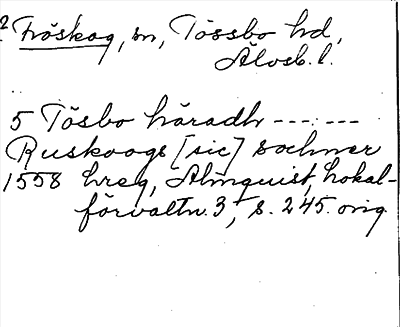 2 Fröskog, sn, Tössbo hd,
Älvsb. l.
5 Tösbo häradh --- ---
Ruskoogs [sic] sochner
1558 hreg, Almquist, Lokal-
förvaltn. 3, s. 245. orig